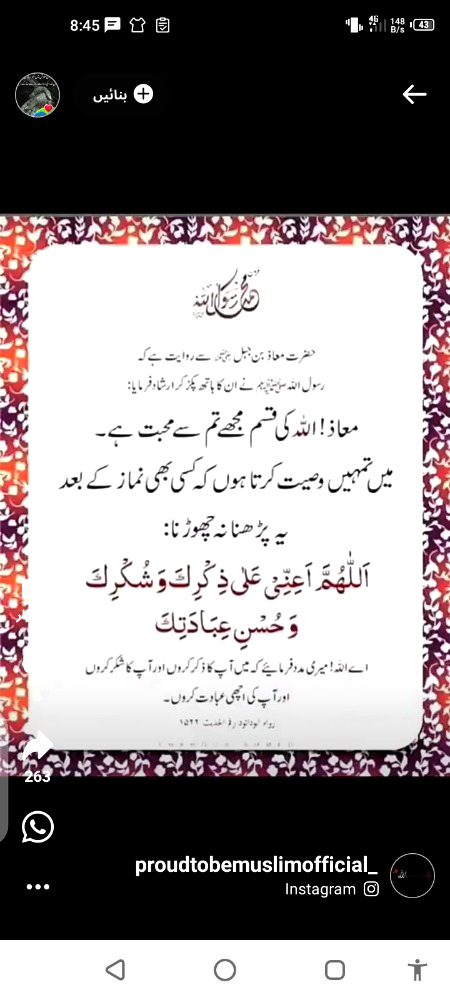 8:45
4G
148
B/s
43
بنائیں
محمد رسول اللہ
حضرت معاذ بن جبل رضی اللہ عنہ سے روایت ہے کہ
رسول اللہ صلی اللہ علیہ وسلم نے ان کا ہاتھ پکڑ کر ارشاد فرمایا:
معاذ! اللہ کی قسم مجھے تم سے محبت ہے۔
میں تمہیں وصیت کرتا ہوں کہ کسی بھی نماز کے بعد
یہ پڑھنا نہ چھوڑنا:
اَللّٰهُمَّ اَعِنِّیْ عَلٰی ذِکْرِكَ وَ شُکْرِكَ
وَ حُسْنِ عِبَادَتِكَ
اے اللہ! میری مدد فرمایئے کہ میں آپ کا ذکر کروں اور آپ کا شکر کروں
اور آپ کی اچھی عبادت کروں۔
رواہ ابوداؤد رقم الحدیث ۱۵۲۲
263
proudtobemuslimofficial_
Instagram